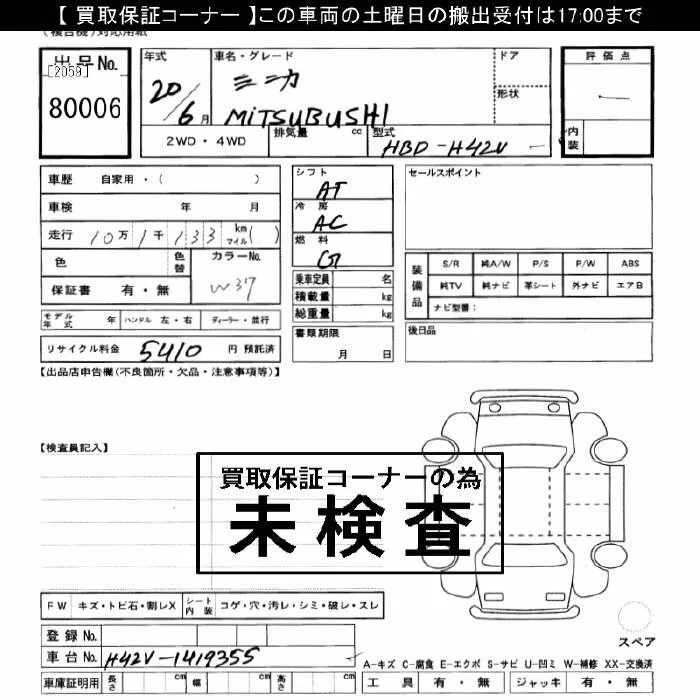 【 買取保証コーナー 】この車両の土曜日の搬出受付は17:00まで
出品No.
[2059]
80006
年式
20/6月
車名・グレード
ミニカ
MiTSUBUSHI
ドア
形状
2WD・4WD
排気量 cc
型式
HBD-H42V
評価点
内装
車歴 自家用・( )
車検 年 月
走行 10万1千133 km マイル( )
色
色替
カラーNo.
W37
保証書 有・無
シフト
AT
冷房
AC
燃料
G
乗車定員 名
積載量 kg
総重量 kg
セールスポイント
装備品
S/R 純A/W P/S P/W ABS
純TV 純ナビ 革シート 外ナビ エアB
ナビ型番:
モデル年式 年 ハンドル 左・右 ディーラー・並行
リサイクル料金 5410 円 預託済
書類期限
月 日
後日品
【出品店申告欄(不良箇所・欠品・注意事項等)】
【検査員記入】
買取保証コーナーの為
未検査
FW キズ・トビ石・割レX シート内装 コゲ・穴・汚レ・シミ・破レ・スレ
登録No.
車台No. H42V-1419355
車庫証明用 長さ cm 幅 cm 高さ cm
スペア
A-キズ C-腐食 E-エクボ S-サビ U-凹ミ W-補修 XX-交換済
工具 有・無 ジャッキ 有・無